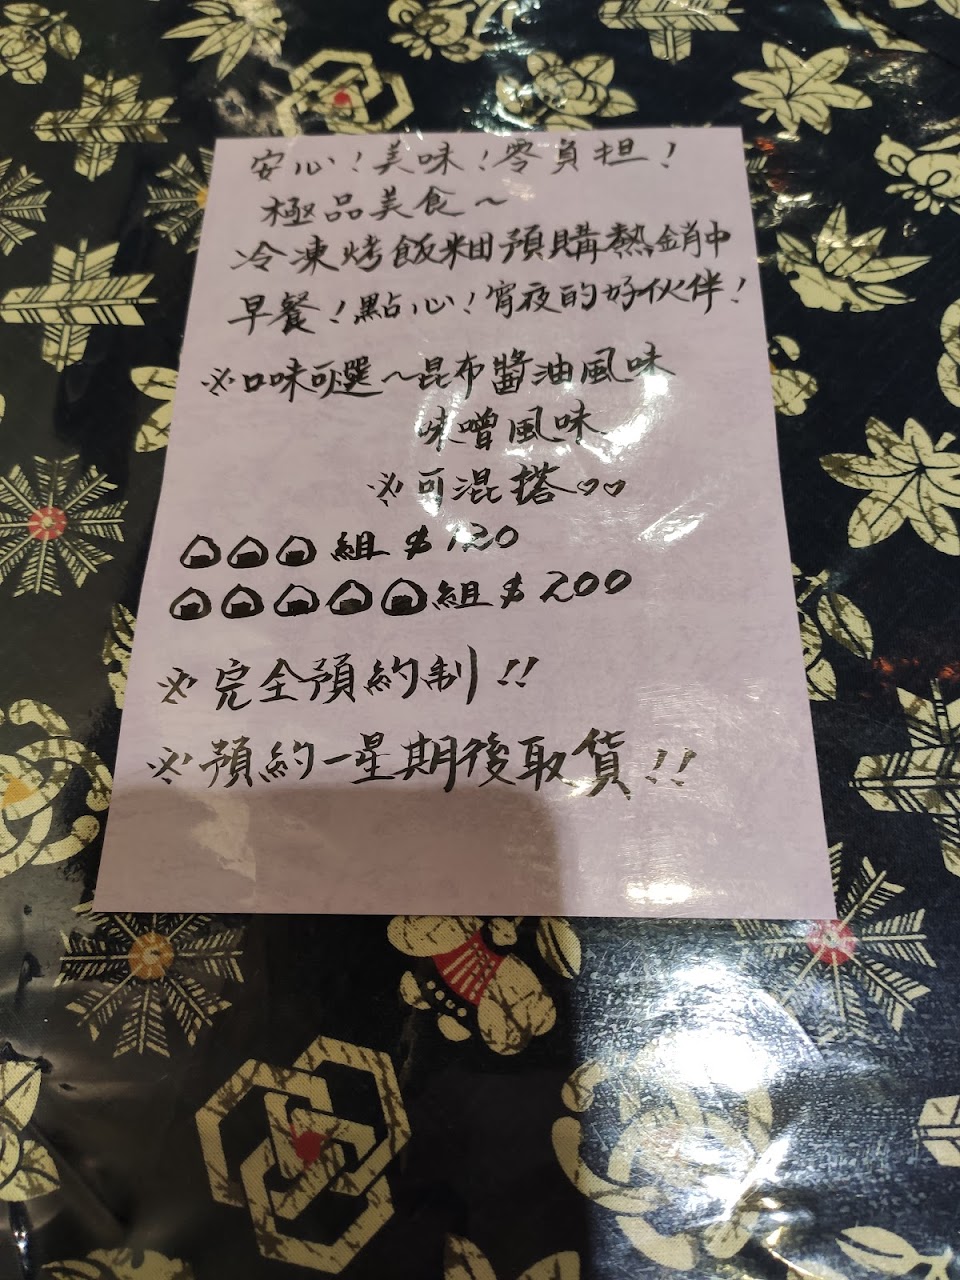 安心！美味！零負担！
極品美食～
冷凍烤飯糰預購熱銷中
早餐！點心！宵夜的好伙伴！
※口味可選～昆布醬油風味
味噌風味
※可混搭♡♡
🍙🍙🍙組 $120
🍙🍙🍙🍙🍙組 $200
※完全預約制!!
※預約一星期後取貨!!